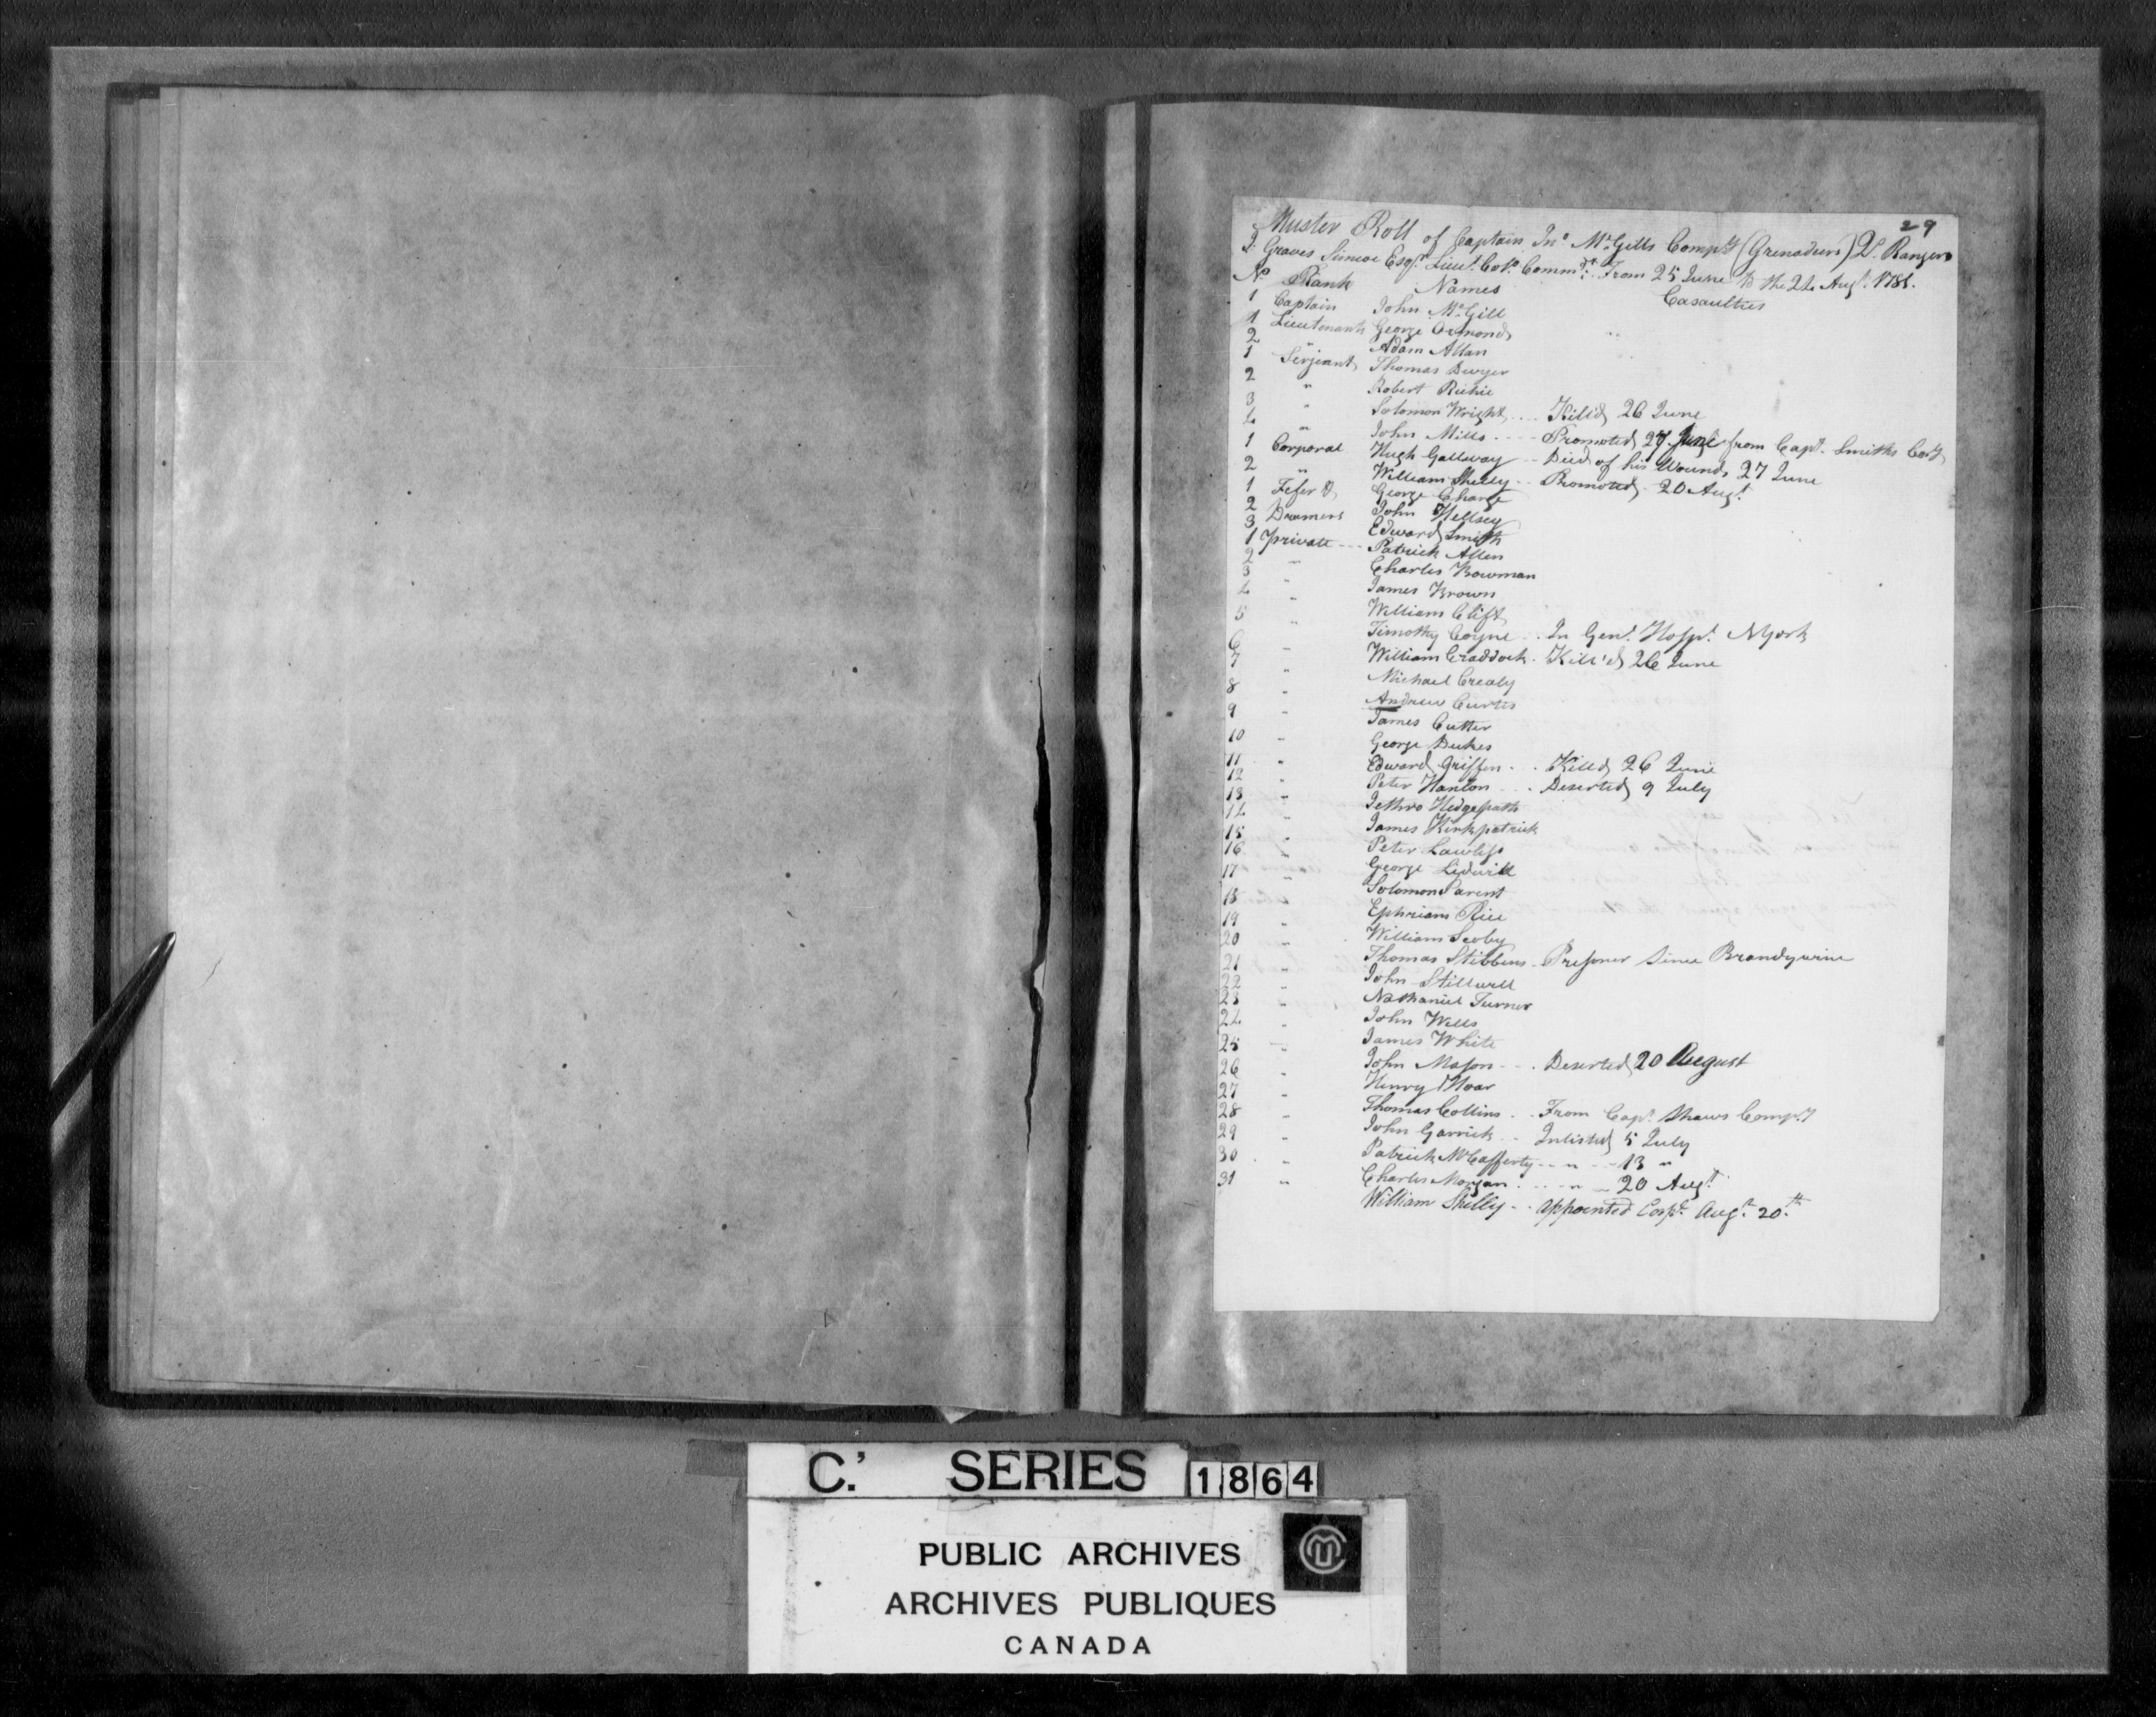 29
Muster Roll of Captain Jno Mc Gills Compy (Grenadiers) Q. Rangers
J. Graves Simcoe Esqr. Lieut. Colo. Commdt. From 25 June to the 24 Augt. 1781.
No Rank Names Casaulties
1 Captain John Mc Gill
1 Lieutenants George Ormond
2 " Adam Allan
1 Serjeant Thomas Dwyer
2 " Robert Richie
3 " Solomon Wright ... Killd 26 June
4 " John Mills ---- Promoted 27 June from Capt. Smiths Coy
1 Corporal Hugh Galloway -- Died of his Wounds 27 June
2 " William Shelly -- Promoted 20 Augt.
1 Fefer & George Change
2 Drumers John Kellsey
3 Edward Smith
1 private --- Patrick Allen
2 " Charles Bowman
3 " James Brown
4 " William Clift
5 " Timothy Coyne .. In Genl. Hospl. NYork
6 " William Craddock . Kill'd 26 June
7 " Michael Crealy
8 " Andrew Curtis
9 " James Cutter
10 " George Dukes
11 " Edward Griffen . . Killd 26 June
12 " Peter Hanlon ... Deserted 9 July
13 " Jethro Hedgepath
14 " James Kirkpatrick
15 " Peter Lawless
16 " George Lidwill
17 " Solomon Parent
18 " Ephriam Rice
19 " William Scoby
20 " Thomas Stibbens - Presoner since Brandywine
21 " John Stillwell
22 " Nathaniel Turner
23 " John Wells
24 " James White
25 " John Mason --. Deserted 20 August
26 " Henry Hoar
27 " Thomas Collins . . From Capt. Shaws Compy
28 " John Garrick . - Inlisted 5 July
29 " Patrick McCafferty -- " -- 13 "
30 " Charles Morgan . --- " - 20 Augt.
31 " William Shelly - . appointed Corpl. Augt. 20th
C.' SERIES 1864
PUBLIC ARCHIVES
ARCHIVES PUBLIQUES
CANADA